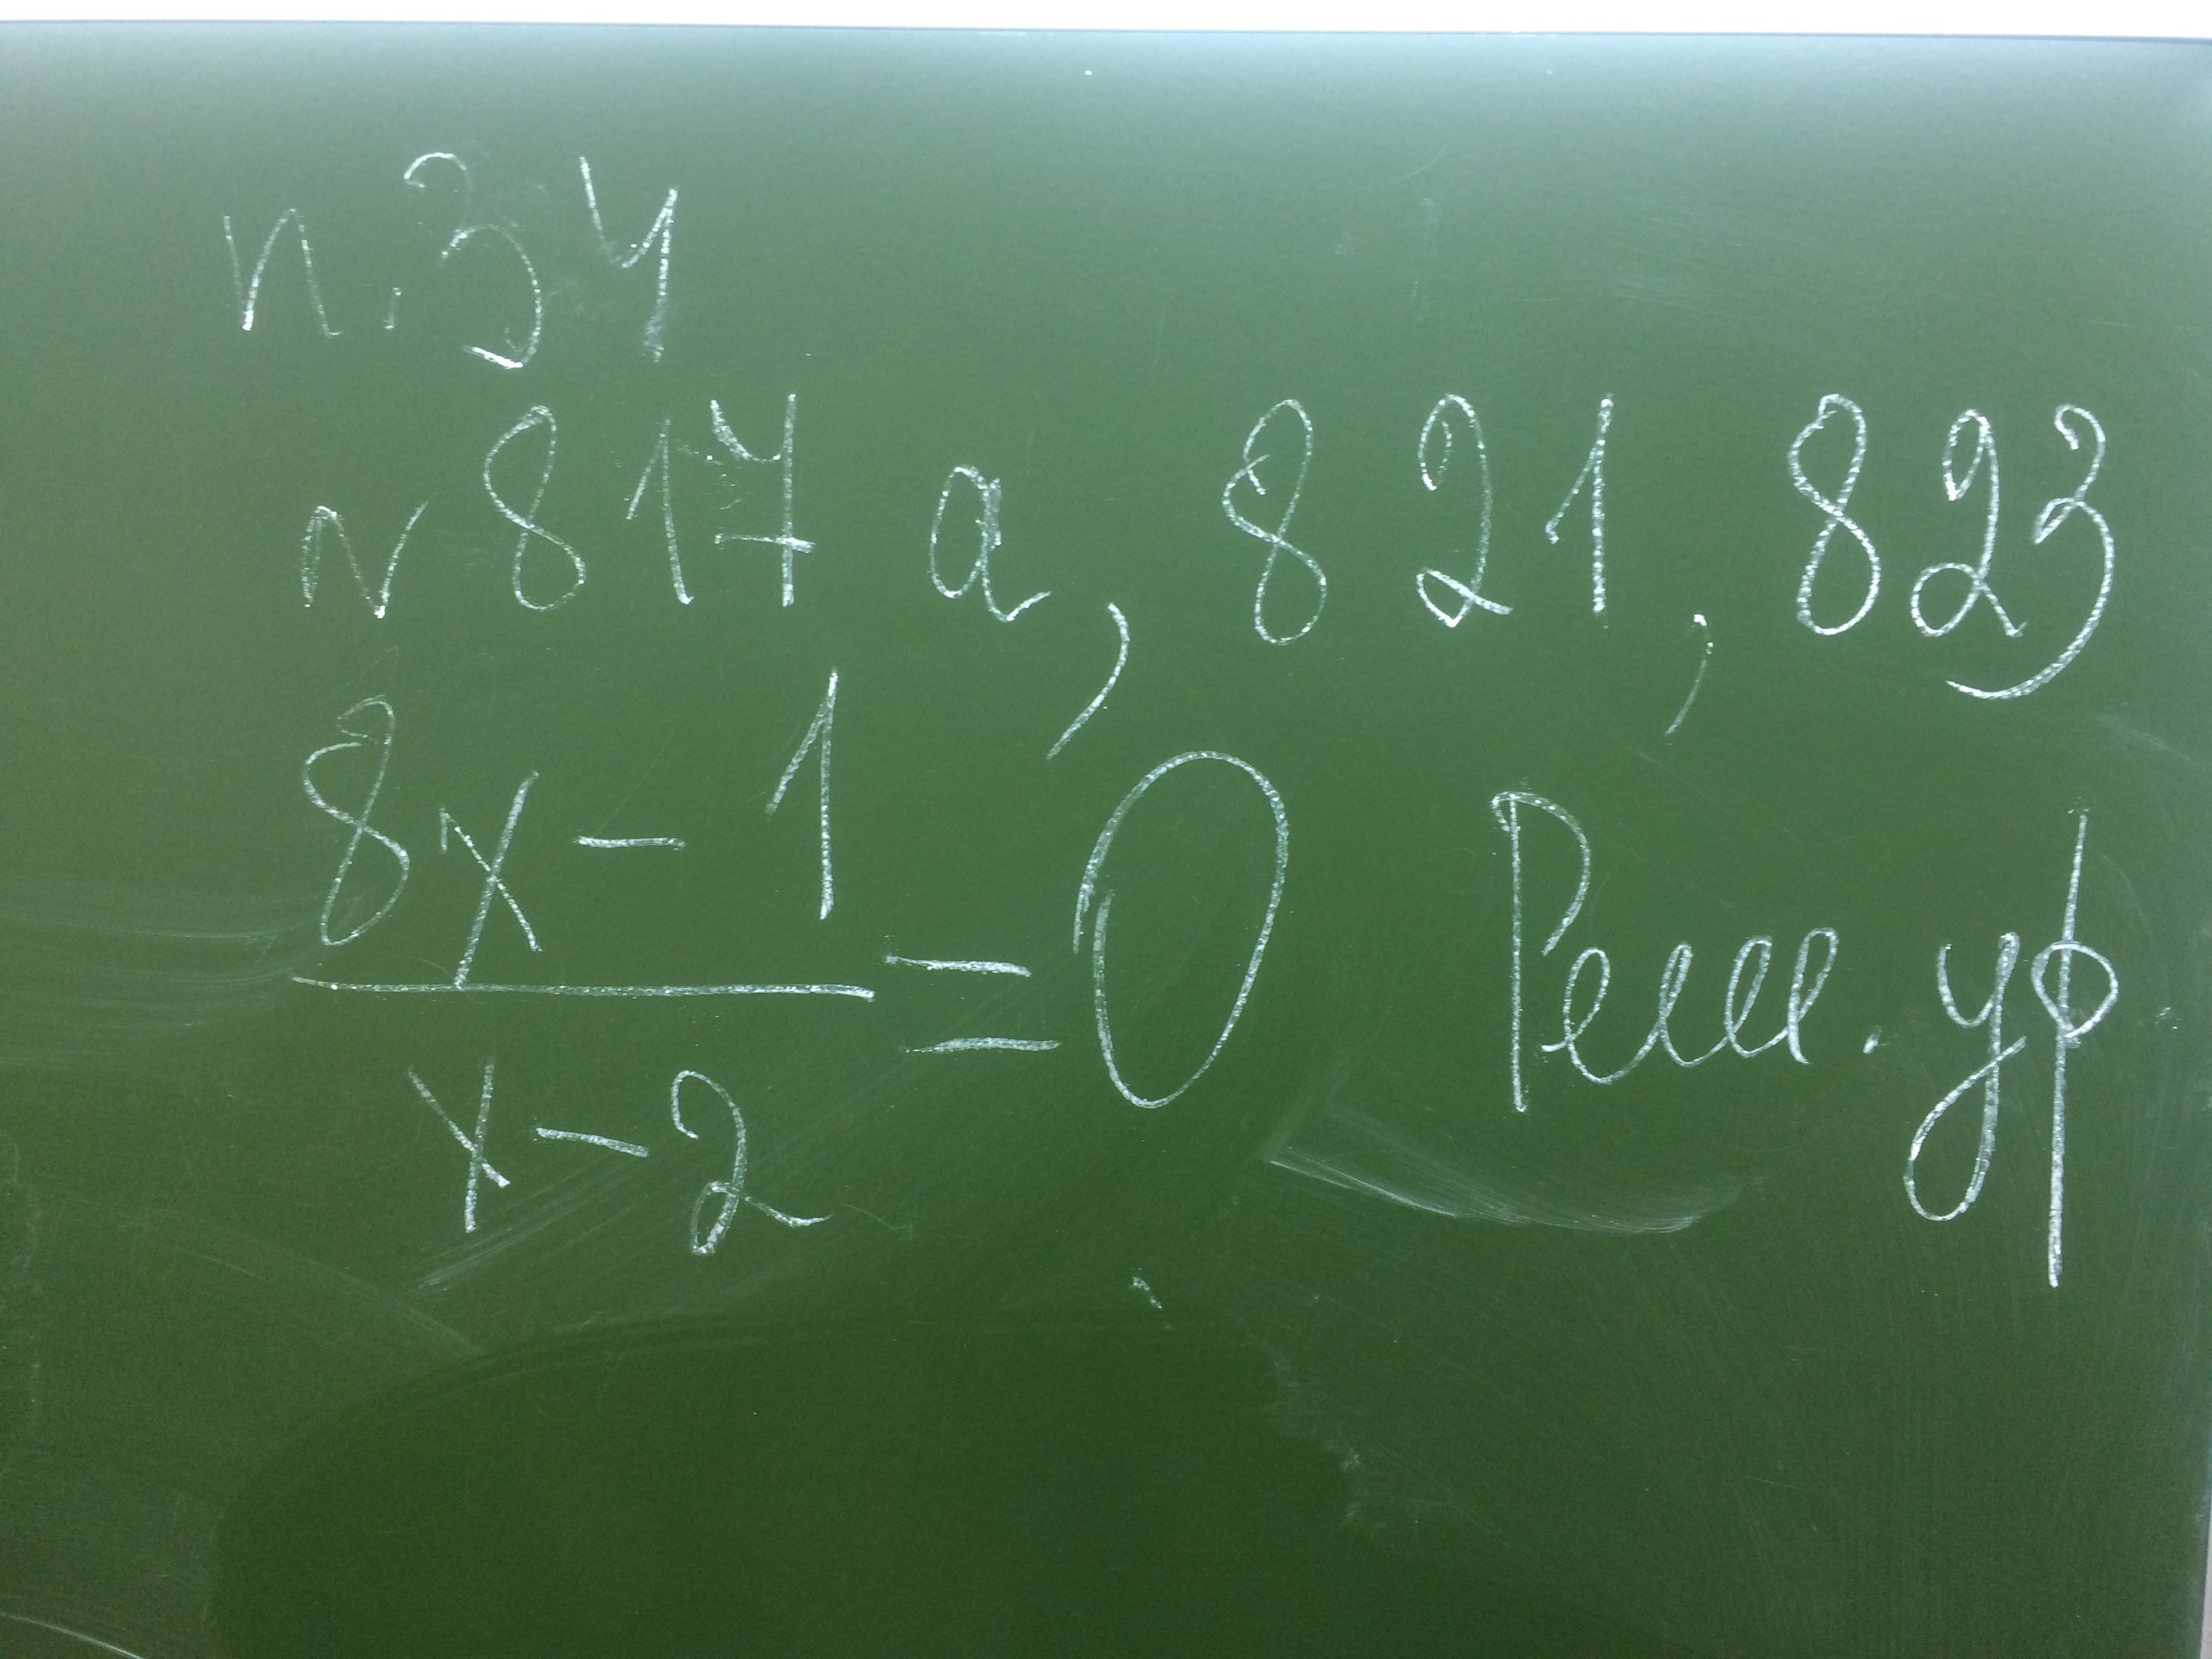 п. 34
№ 817 а, 821, 823
8x - 1
—— = 0 Реш. уф
x - 2